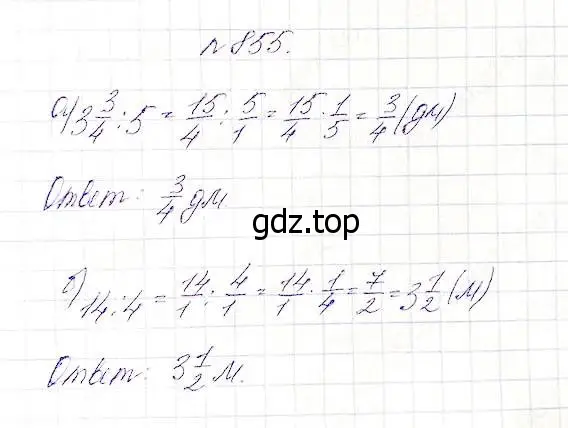 №855.
а) 3 3/4 : 5 = 15/4 : 5/1 = 15/4 · 1/5 = 3/4 (дм)
Ответ: 3/4 дм.
gdz.top
б) 14 : 4 = 14/1 : 4/1 = 14/1 · 1/4 = 7/2 = 3 1/2 (м)
Ответ: 3 1/2 м.